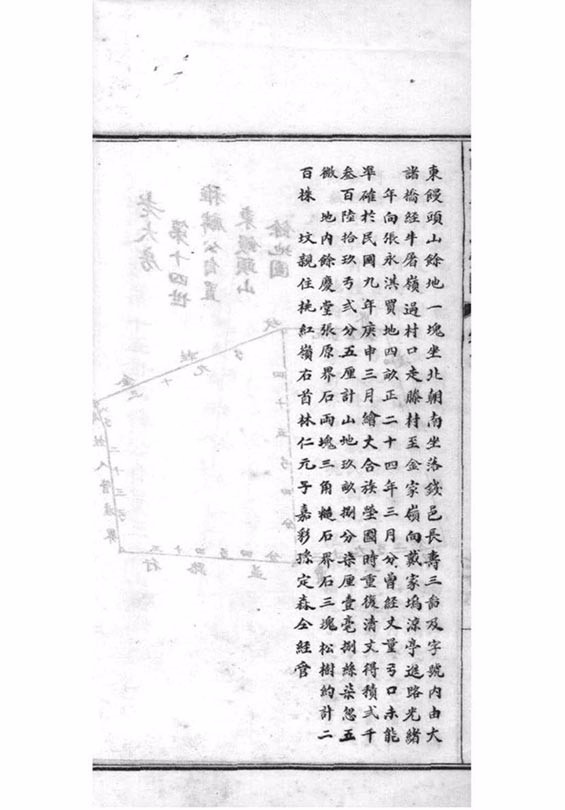 東饅頭山餘地一塊坐北朝南坐落錢邑長壽三啚及字號內由大
諸橋經牛屠嶺過村口走藤村至金家嶺向戴家塢涼亭進路光緒
年向張永淇買地四畝正二十四年三月分曾經丈量弓口未能
準確於民國九年庚申三月繪丈合族塋圖時重復清丈得積弍千
叁百陸拾玖弓弍分五厘計山地玖畝捌分柒厘壹毫捌絲柒忽五
微地內餘慶堂張原界石兩塊三角糙石界石三塊松樹約計二
百株 墳親住桃紅嶺右首林仁元子嘉彩孫定森仝經管
餘地圖
東饅頭山
雅麟公自置
第十四世
老大房